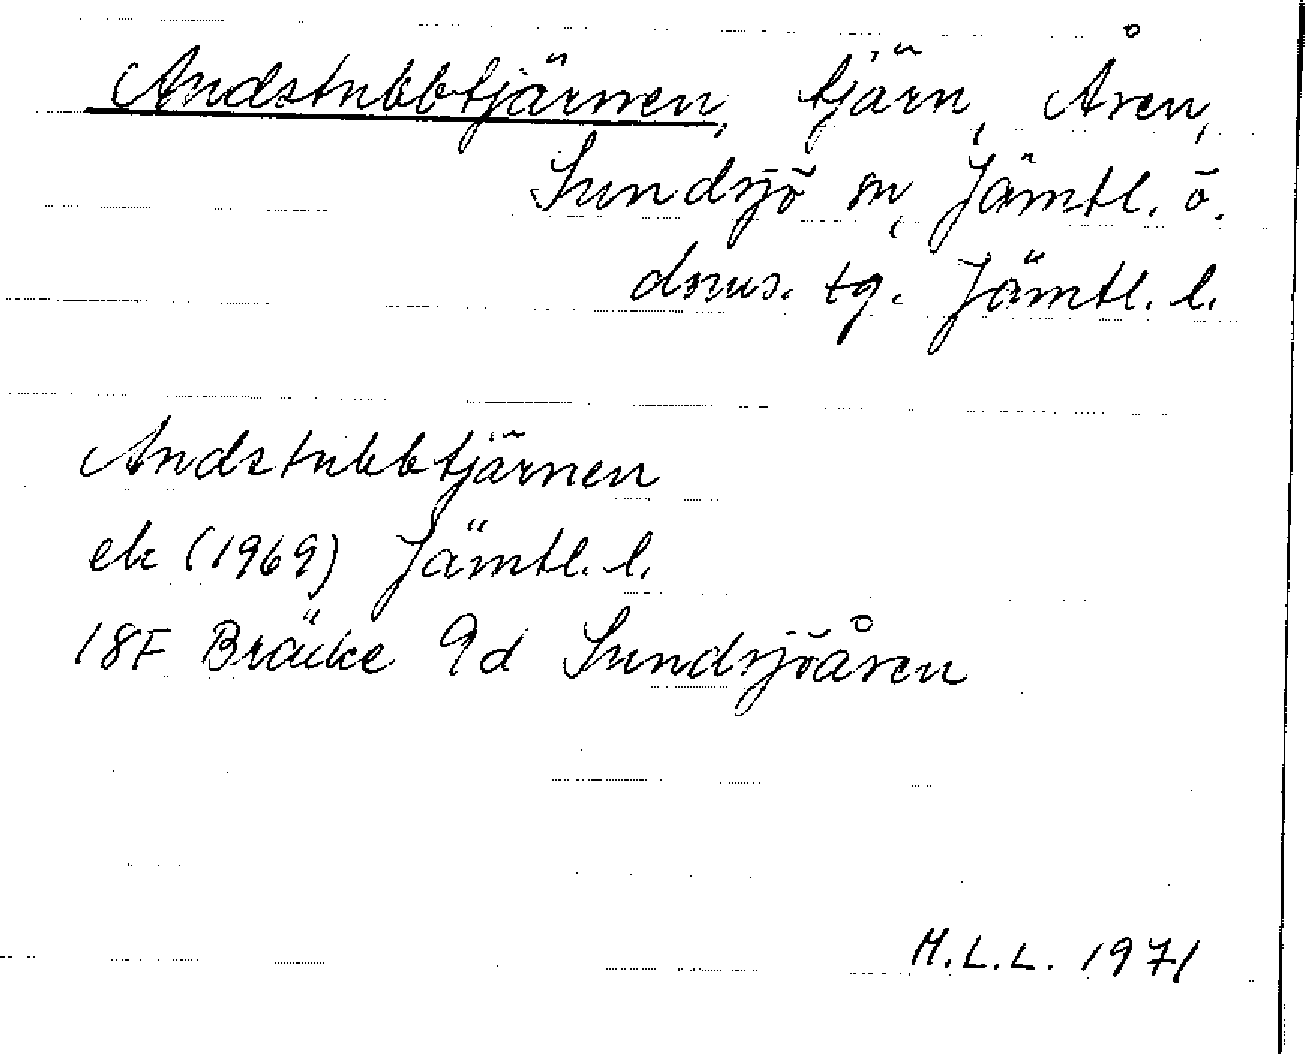 Andstubbtjärnen, tjärn, Åsen,
Sundsjö sn, Jämtl. ö.
doms. tg. Jämtl. l.
Andstubbtjärnen
ek (1969) Jämtl. l.
18F Bräcke 9d Sundsjöåsen
H.L.L. 1971